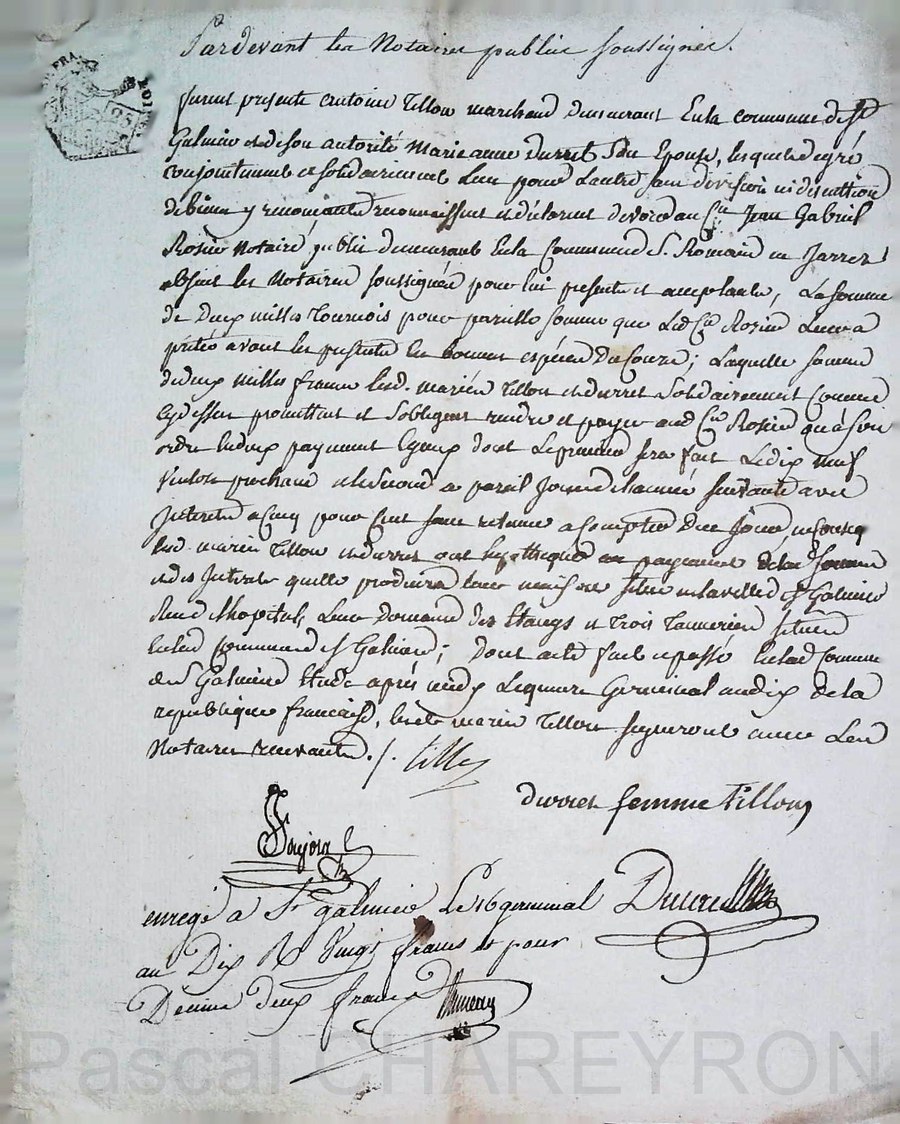 Pardevant les Notaires publics soussignés.
furent presents antoine Tillon marchand demeurant En la commune de St
Galmier et de son autorité Marie anne Durret Son Epouse, lesquels de gré
conjointement et solidairement L'un pour L'autre sans division ni discution
de biens y renonçants reconnaissent et déclarent devoir au Cn Jean Gabriel
Rosier Notaire public demeurant En la Commune St. Romain en Jarrez
absent les Notaires soussignés pour lui présents et acceptants, La somme
de Deux milles Tournois pour pareille somme que Led. Cn Rosier Leur a
prêtée avant les présentes En bonnes espèces De Cours; Laquelle somme
de deux milles francs Lesd. mariés Tillon et durret Solidairement Comme
Cy dessus promettent et S'obligent rendre et payer aud. Cn Rosier ou à Son
ordre En deux payements Egaux dont Le premier sera fait Le dix neuf
Ventose prochain et le Second a pareil Jour de L'année suivante avec
Intérets a Cinq pour Cent sans retenue a Compter De ce Jour,
Lesd. mariés Tillon et durret ont hypothequé au payement de lad. Somme
et des Intérets quelle produira Leur maison située en la ville de St Galmier
rue de L'hopital, Leur Domaine des Etangs et Trois Tanneries situées
En lad. commune de St Galmier; Dont acte fait et passé En lad. Commune
de St Galmier Etude après midy Le quinze Germinal an dix de la
republique française, Lesdts mariés Tillon signeront avec Les
Notaires recevants ./. tillon
durret femme tillon
Durre
enregé a St galmier Le 16 germinal
an Dix R Vingt francs et pour
Décime deux francs
Pascal CHAREYRON